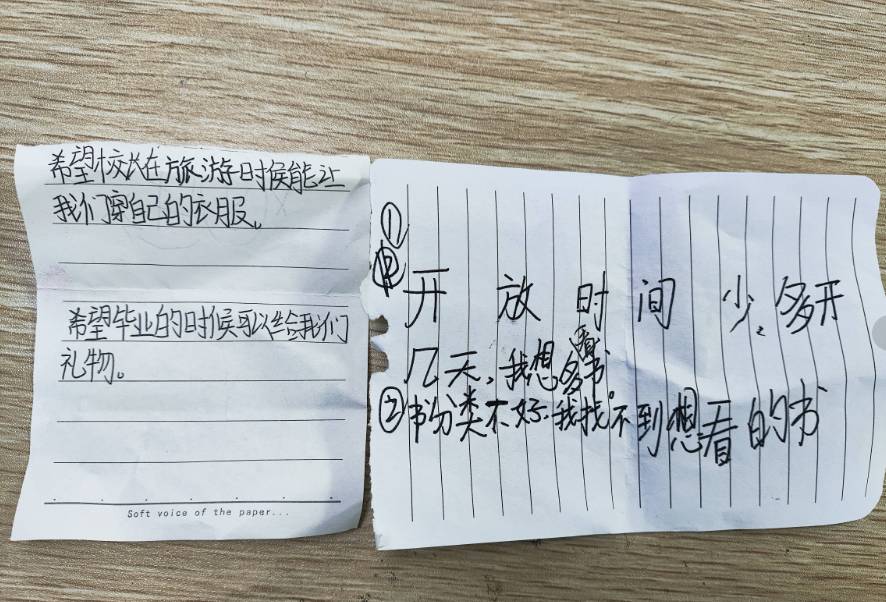 希望校长在旅游时候能让
我们穿自己的衣服。
希望毕业的时候可以给我们
礼物。
Soft voice of the paper...
①
开放时间少。多开
几天，我想多看书。
②书分类不好，我找不到想看的书